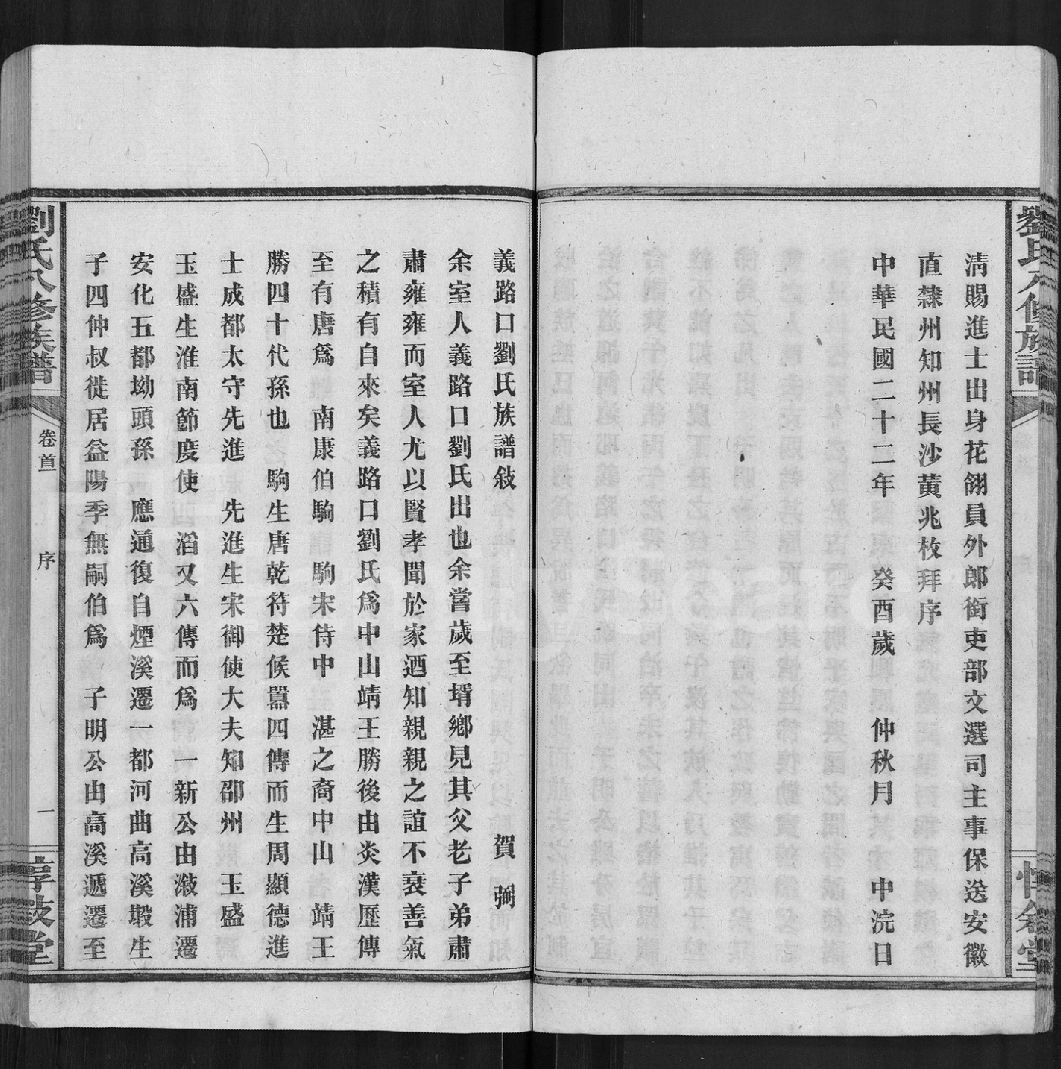 清賜進士出身花翎員外郎銜吏部文選司主事保送安徽
直隸州知州長沙黃兆枚拜序
中華民國二十二年 癸酉歲 仲秋月 中浣日
義路口劉氏族譜敍 賀 弼
余室人義路口劉氏出也余嘗歲至壻鄉見其父老子弟肅
肅雍雍而室人尤以賢孝聞於家迺知親親之誼不衰善氣
之積有自來矣義路口劉氏爲中山靖王勝後由炎漢歷傳
至有唐爲 南康伯駒 駒宋侍中 湛之裔中山 靖王
勝四十代孫也 駒生唐乾符楚候嚣四傳而生周顯德進
士成都太守先進 先進生宋御使大夫知邵州 玉盛
玉盛生淮南節度使 滔又六傳而爲 一新公由漵浦遷
安化五都坳頭孫 應通復自煙溪遷一都河曲高溪塅生
子四仲叔徙居益陽季無嗣伯爲 子明公由高溪遞遷至
劉氏八修族譜
卷首
序
一